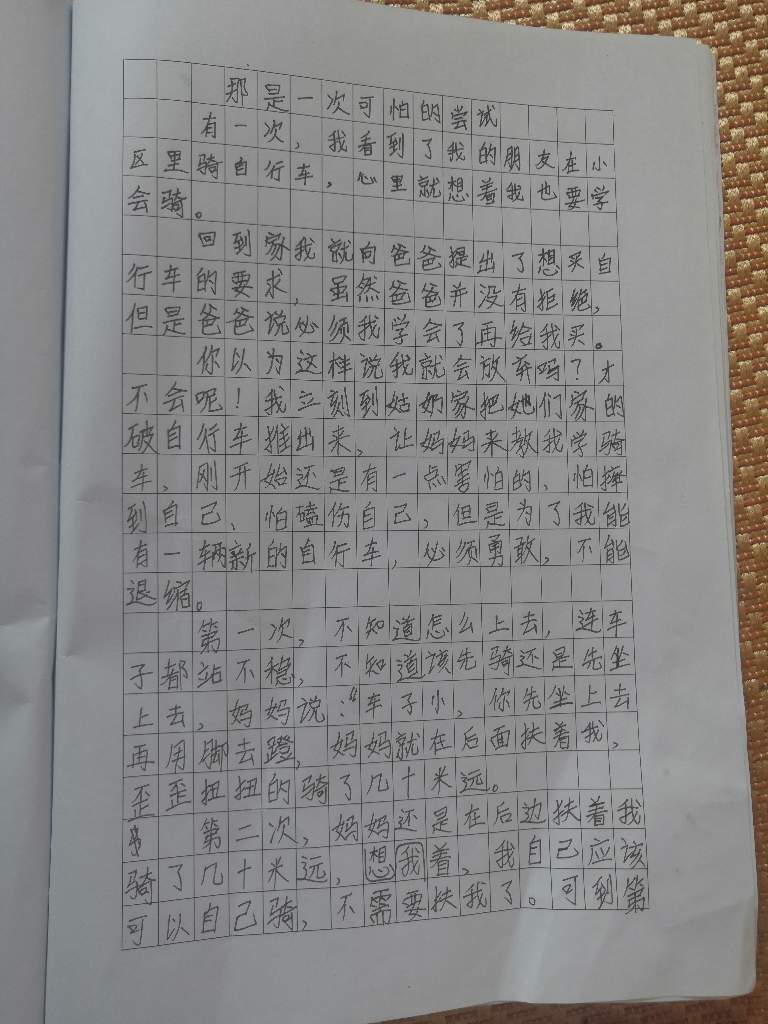 那是一次可怕的尝试
有一次，我看到了我的朋友在小
区里骑自行车，心里就想着我也要学
会骑。
回到家我就向爸爸提出了想买自
行车的要求，虽然爸爸并没有拒绝，
但是爸爸说必须我学会了再给我买。
你以为这样说我就会放弃吗？才
不会呢！我立刻到姑奶家把她们家的
破自行车推出来，让妈妈来教我学骑
车，刚开始还是有一点害怕的、怕摔
到自己、怕磕伤自己，但是为了我能
有一辆新的自行车，必须勇敢，不能
退缩。
第一次，不知道怎么上去，连车
子都站不稳，不知道该先骑还是先坐
上去，妈妈说：“车子小，你先坐上去
再用脚去蹬，妈妈就在后面扶着我，
歪歪扭扭的骑了几十米远。
第二次，妈妈还是在后边扶着我
骑了几十米远，想我着，我自己应该
可以自己骑，不需要扶我了。可到第